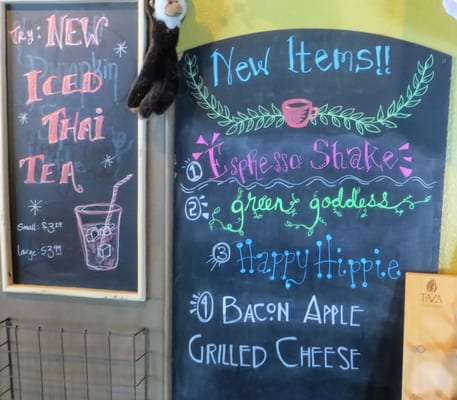 Try: NEW
ICED
THAI
TEA
Small: $3.29
Large: $3.99
New Items!!
Espresso Shake
1
2 green goddess
3 Happy Hippie
4 BACON APPLE
GRILLED CHEESE
TAZA